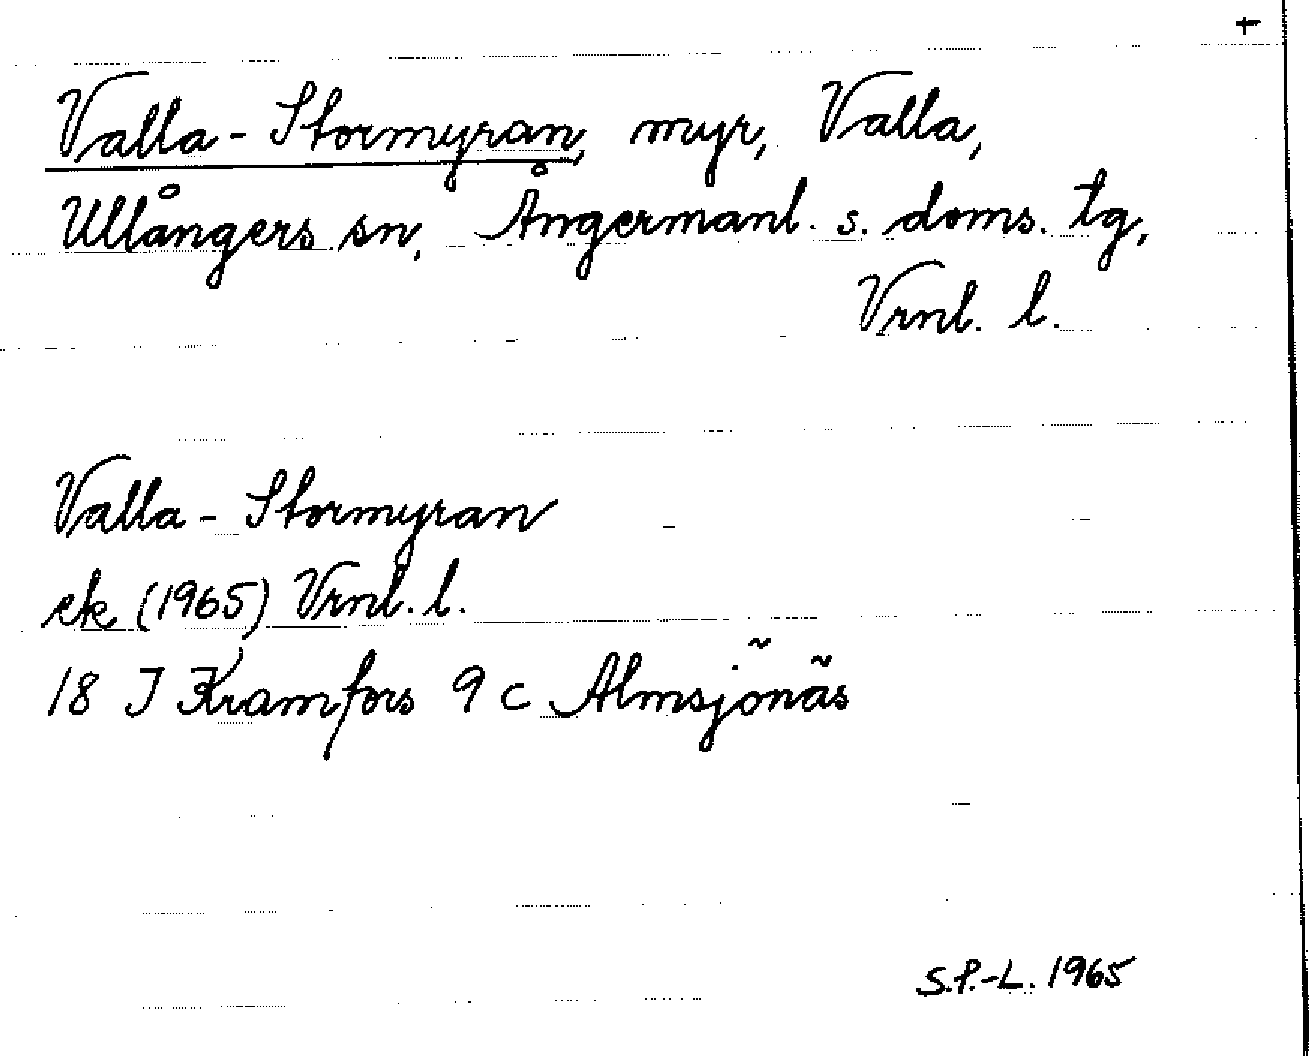 +
Valla-Stormyran, myr, Valla,
Ullångers sn, Ångermanl. s. doms. tg,
Vrnl. l.
Valla-Stormyran
ek (1965) Vrnl. l.
18 J Kramfors 9 c Almsjönäs
S.P.-L. 1965